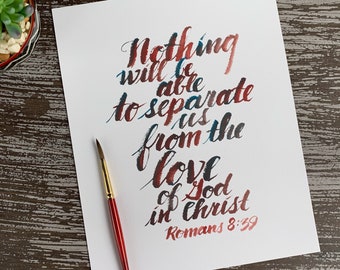 Nothing
will be
able
to separate
us
from the
love
of God
in Christ
Romans 8:39